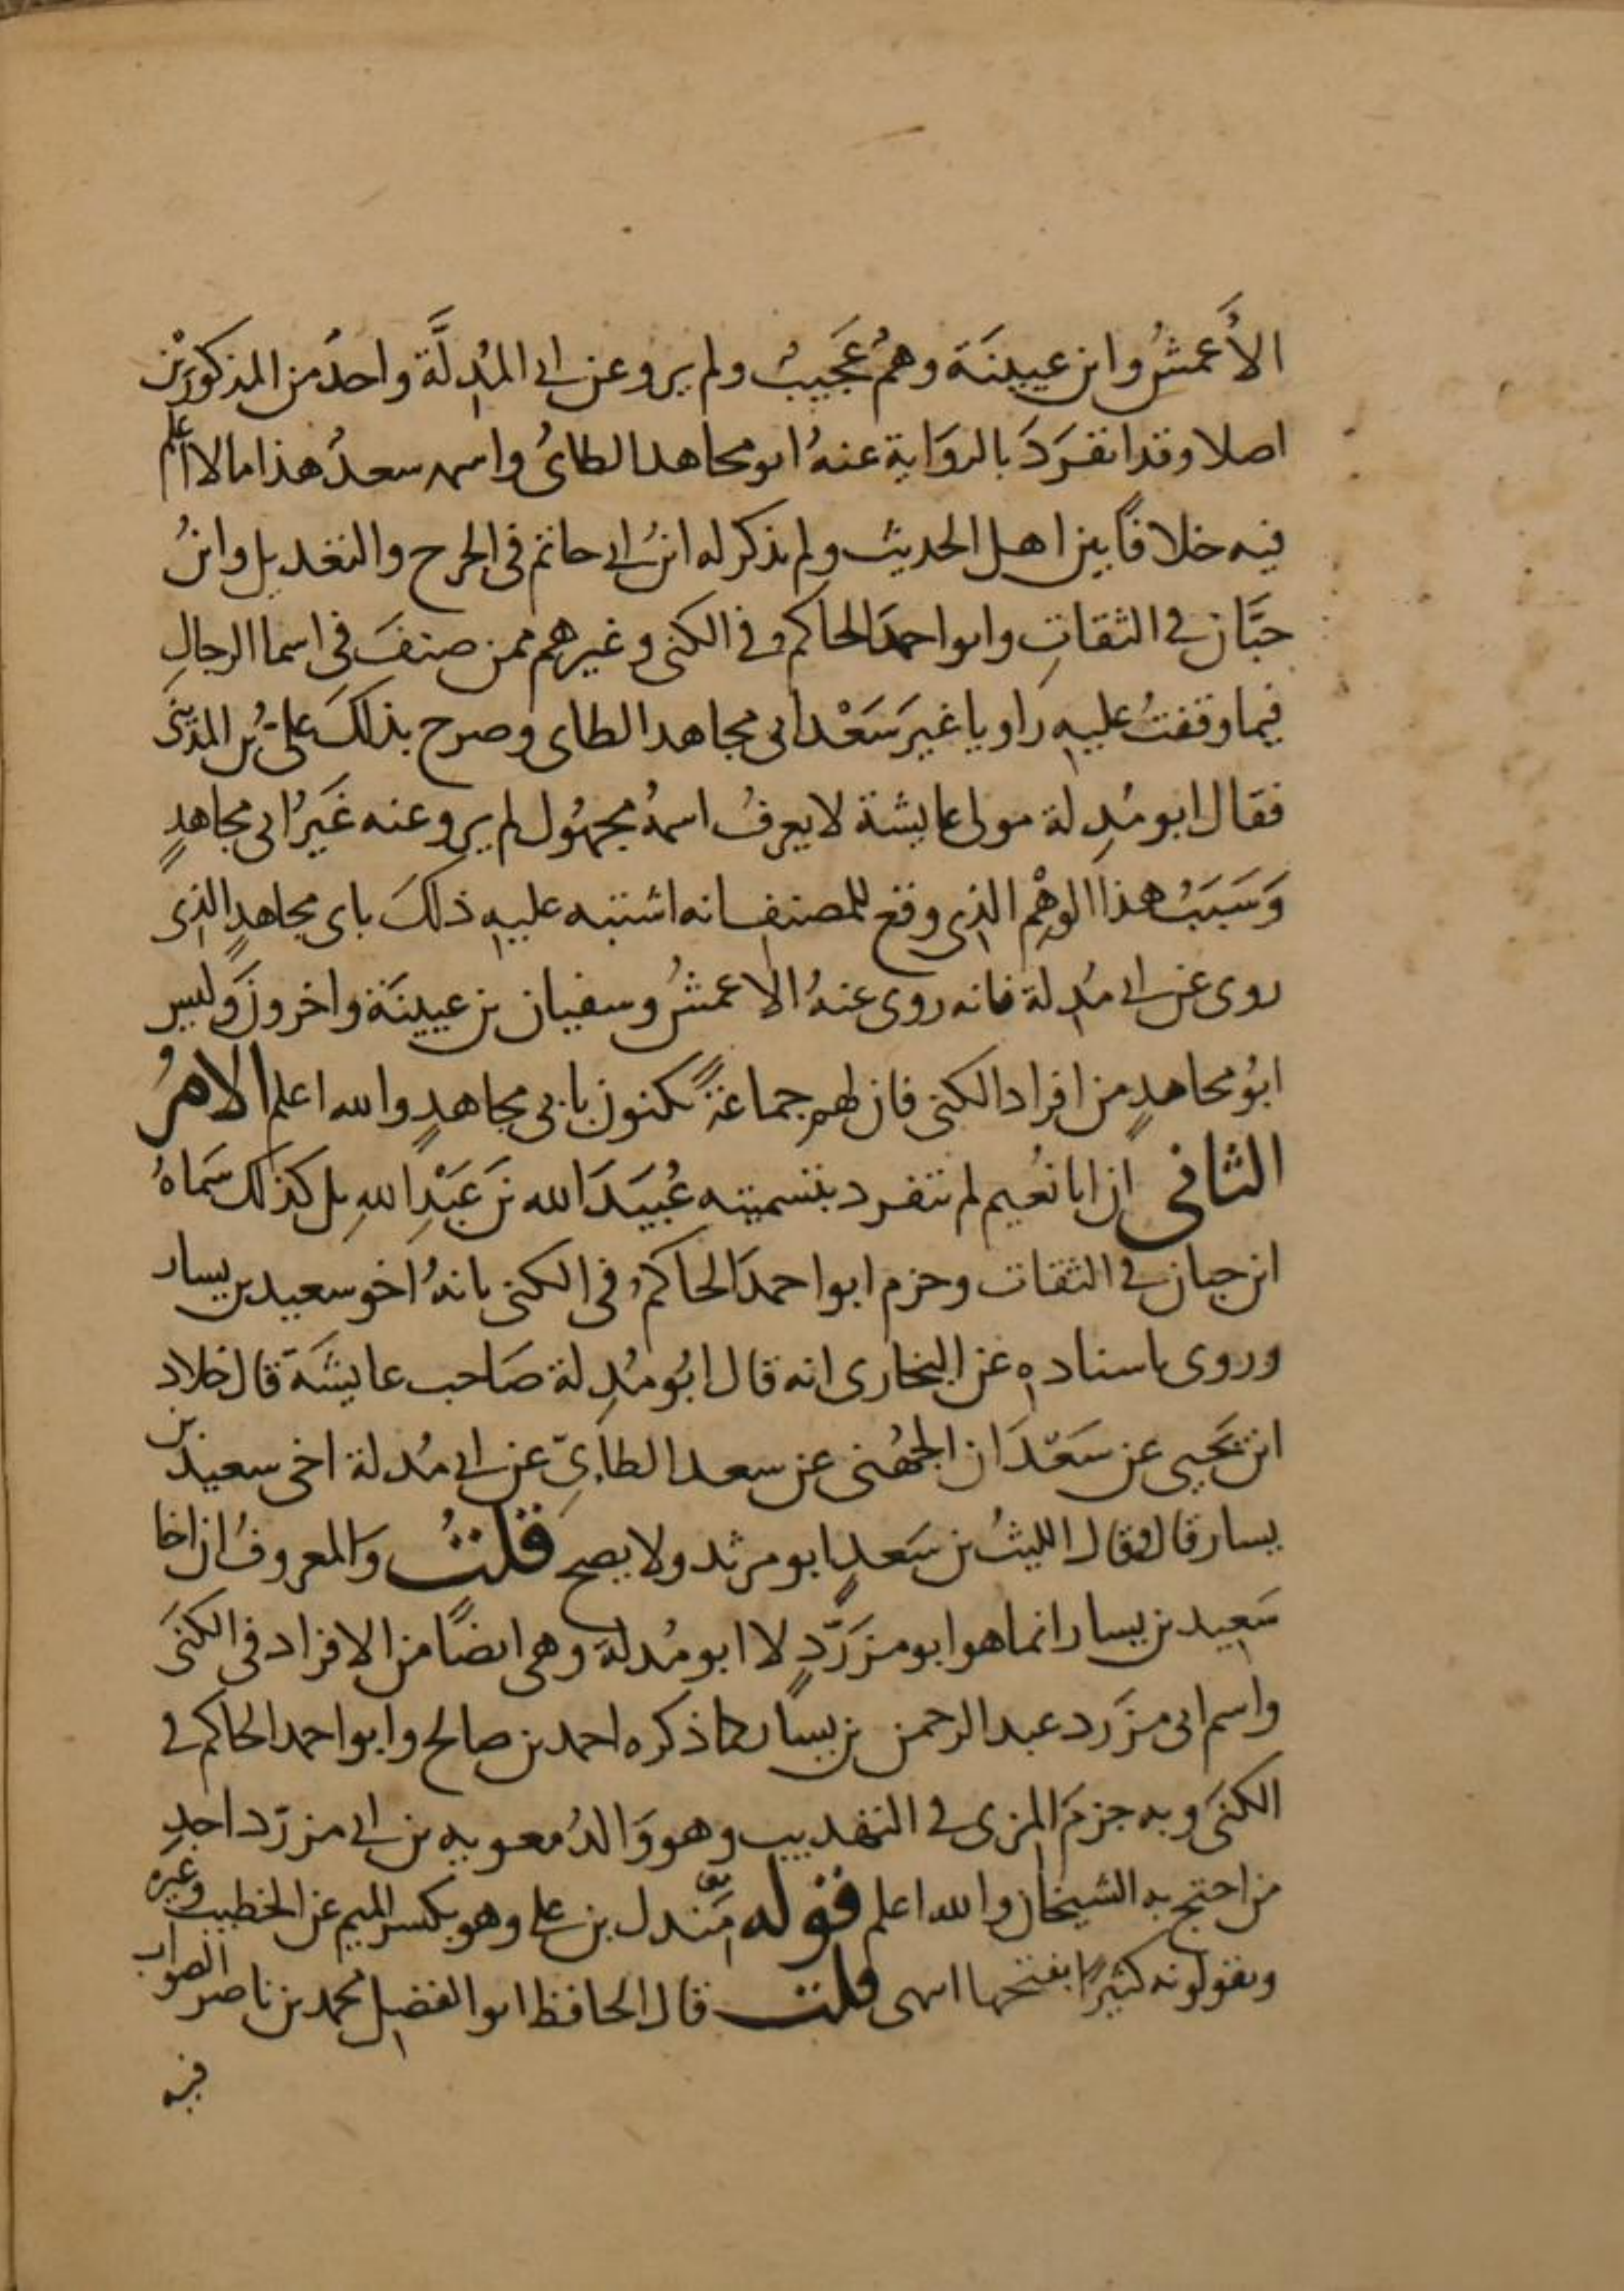 الأعمشُ وابن عيينَة وهمُ عَجَيبُ ولم يرو عن ابى المُدِلَّة واحدُ من المذكورَيْن
اصلا وقد انفرَدَ بالروَاية عنهُ ابو مجاهد الطاىُ واسمه سعدُ هذا مالا اعلم
فيه خلافاً بين اهل الحديث ولم يذكر له ابنُ ابى حاتم فى الجرح والتعديل وابنُ
حبَّان فى الثقاتِ وابو احمدَ الحاكم فى الكنى وغيرهم ممن صنفَ فى اسما الرجالِ
فيما وقفتُ عليهِ راويا غيرَ سَعْد ابى مجاهد الطاى وصرح بذلكَ علىُّ بُن المدينىَ
فقال ابو مُدِلة مولى عايشة لا يعرفُ اسمهُ مجهُول لم يرو عنه غَيَرُ ابى مجاهدٍ
وَسَبَبُ هذا الوهْم الذى وقع للمصنف انه اشتبه عليهِ ذلكَ باى مجاهدٍ الذى
روى عن ابى مُدلة فانه روى عنهُ الاعمشُ وسفيان بن عيينَة واخرونَ وليس
ابوُ مجاهدٍ من افراد الكنى فان لهم جماعةً يكنون بابى مجاهدٍ والله اعلم الامرُ
الثانى ان ابا نعُيم لم يتفرد بتسميته عُبيَدَ الله بَن عَبْدِ اللهِ بل كذلك سَماهُ
ابن حبان فى الثقات وجزم ابو احمدَ الحاكمُ فى الكنى بانهُ اخو سعيد بن يسار
وروى باسنادهِ عن البخارى انه قال ابُو مُدِلة صَاحب عايشَة قال خلاد
ابن يَحيى عن سَعْدَان الجهُنى عن سعد الطاىِّ عن ابى مُدلة اخى سعيد بن
يسار قال وقال الليثُ بن سَعدٍ ابو مرثد ولا يصح قلتُ والمعروفُ ان اخا
سَعيد بن يسار انما هو ابو مزَرّدٍ لا ابو مُدلة وهى ايضًا من الافراد فى الكنىَ
واسم ابى مزَرد عبد الرحمن بن يسار كما ذكره احمد بن صالح وابو احمد الحاكم فى
الكنىَ وبه جزمَ المزى فى التهذيب وهو وَالدُ معويه بن ابى مزرّد احد
من احتج به الشيخان والله اعلم قوله مَِندل بن على وهو بكسر الميم عن الخطيب وغيره
ويقولونه كثيرًا بفتحها انتهى قلت قال الحافظ ابو الفضل محمد بن ناصر الصواب
فيه